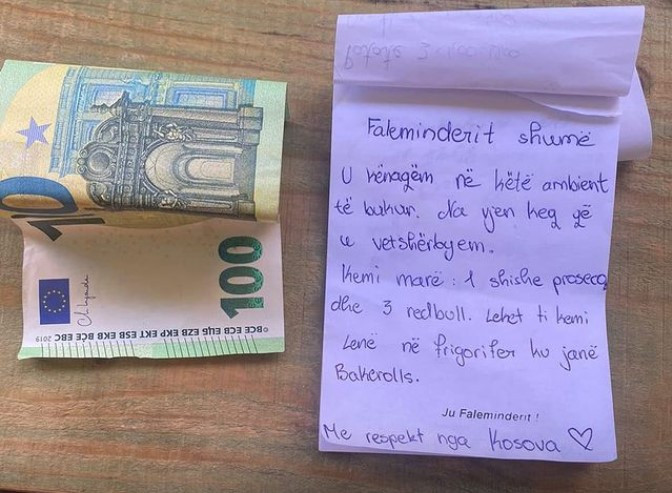 100
©BCE ECB ЕЦБ EZB EKP EKT ESB EKB BĊE EBC 2019
Faleminderit shumë
U kënaqëm në këtë ambient
të bukur. Na vjen keq që
u vetshërbyem.
Kemi marë : 1 shishe prosecco
dhe 3 redbull. Lekët ti kemi
Lenë në frigorifer ku janë
Bakerolls.
Ju Faleminderit !
Me respekt nga Kosova ♡